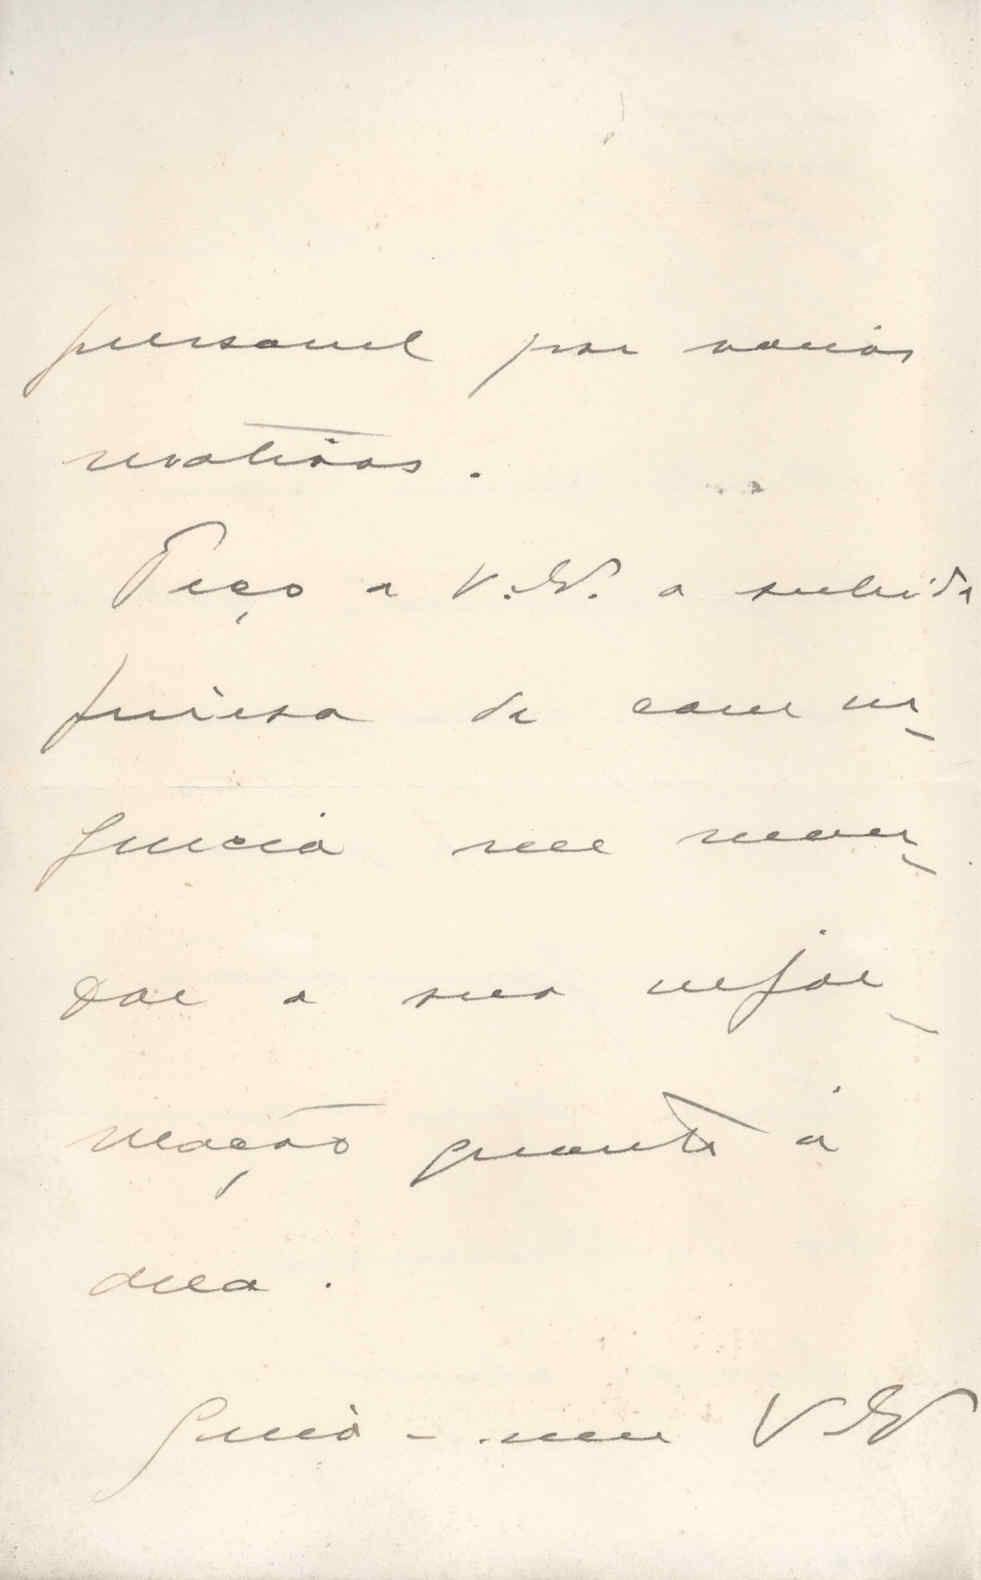 pessoal por varios
motivos.
Peço a V. Ex. a subida
fineza de com ur-
gencia me man-
dar a sua infor-
mação quanto á
V. Ex